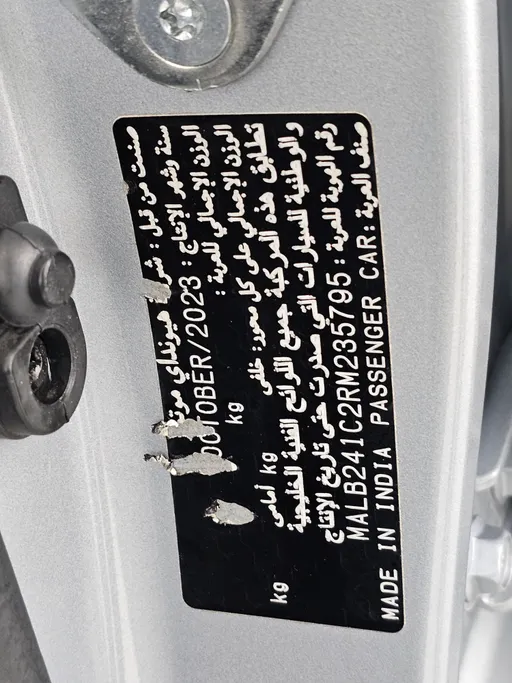 صنعت من قبل : شركة هيونداي موتو
سنة وشهر الإنتاج : OCTOBER/2023
الوزن الإجمالي للعربة : kg
الوزن الإجمالي على كل محور: خلفي kg أمامي kg
تطابق هذه المركبة جميع اللوائح الفنية الخليجية
والوطنية للسيارات التي صدرت حتى تاريخ الإنتاج
رقم الهوية للعربة : MALB241C2RM235795
صنف العربة : PASSENGER CAR
MADE IN INDIA